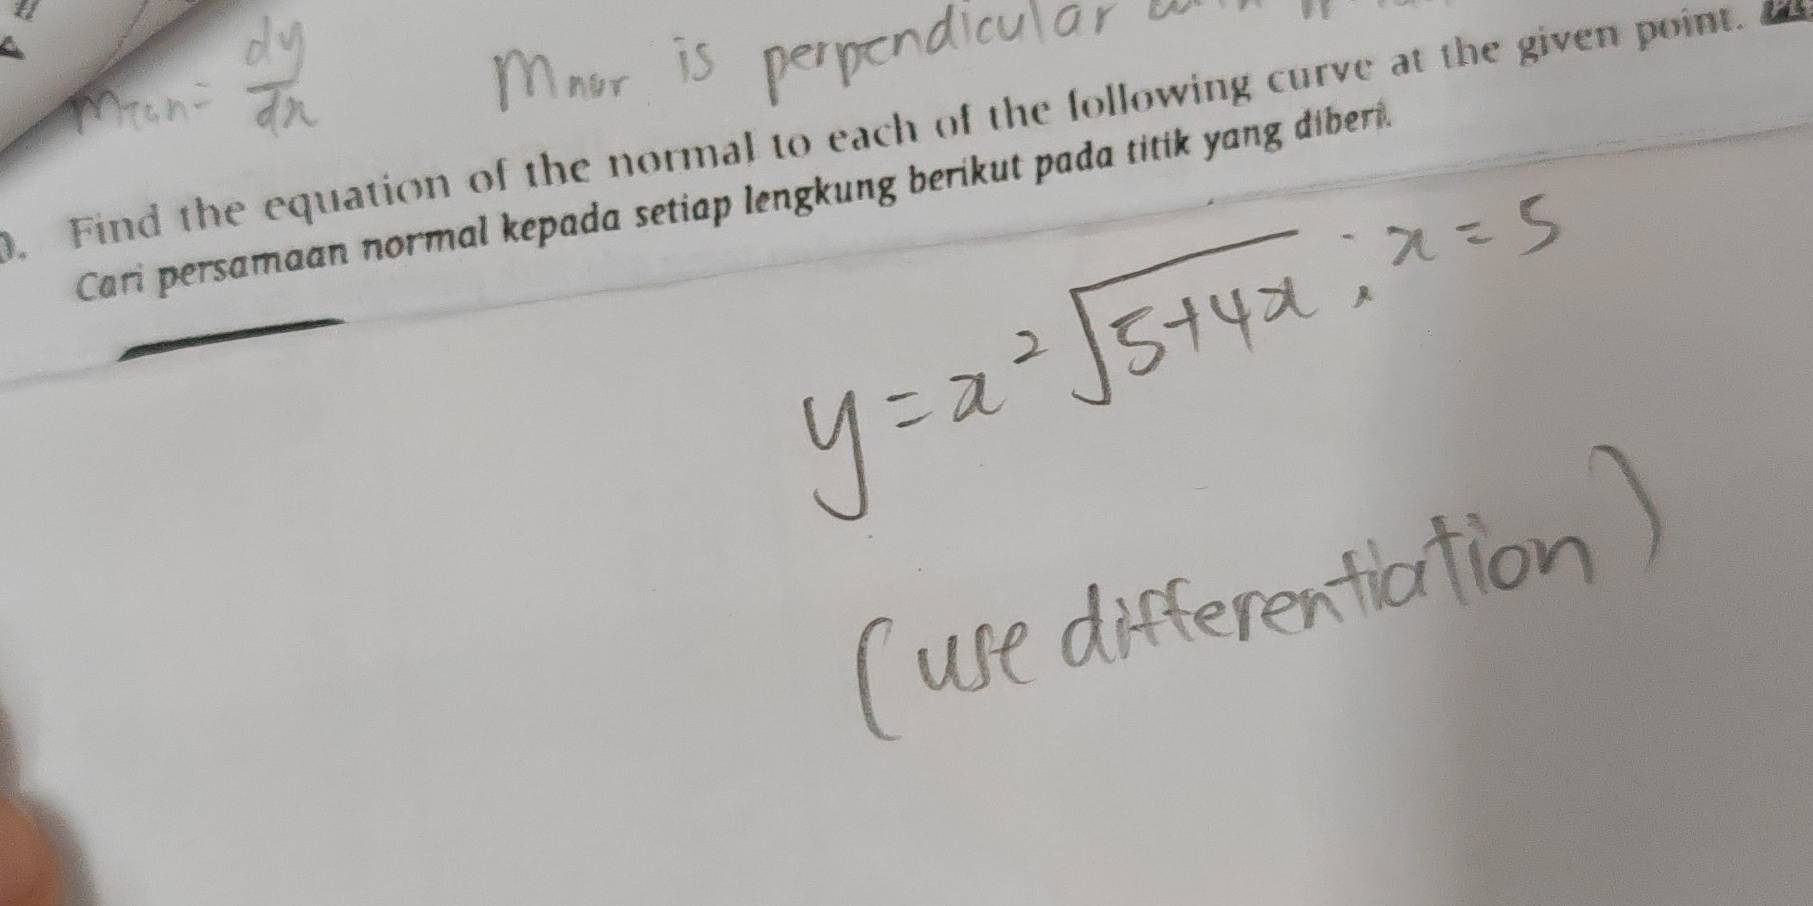 m tan = dy/dx
m nor is perpendicular
Find the equation of the normal to each of the following curve at the given point.
Cari persamaan normal kepada setiap lengkung berikut pada titik yang diberi.
y = x²√(5+4x) ; x = 5
(use differentiation)